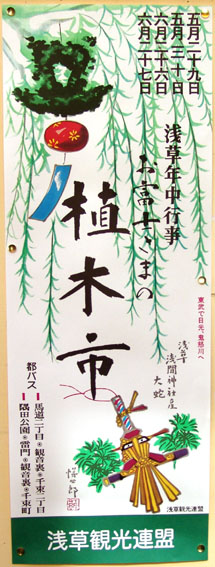 五月二十九日
五月三十日
六月二十六日
六月二十七日
浅草年中行事
お富士さまの
植木市
東武で日光、鬼怒川へ
浅草
浅間神社産
大蛇
都バス
馬道二丁目◉観音裏◉千束二丁目
隅田公園◉雷門◉観音裏◉千束町
浅草観光連盟
浅草観光連盟